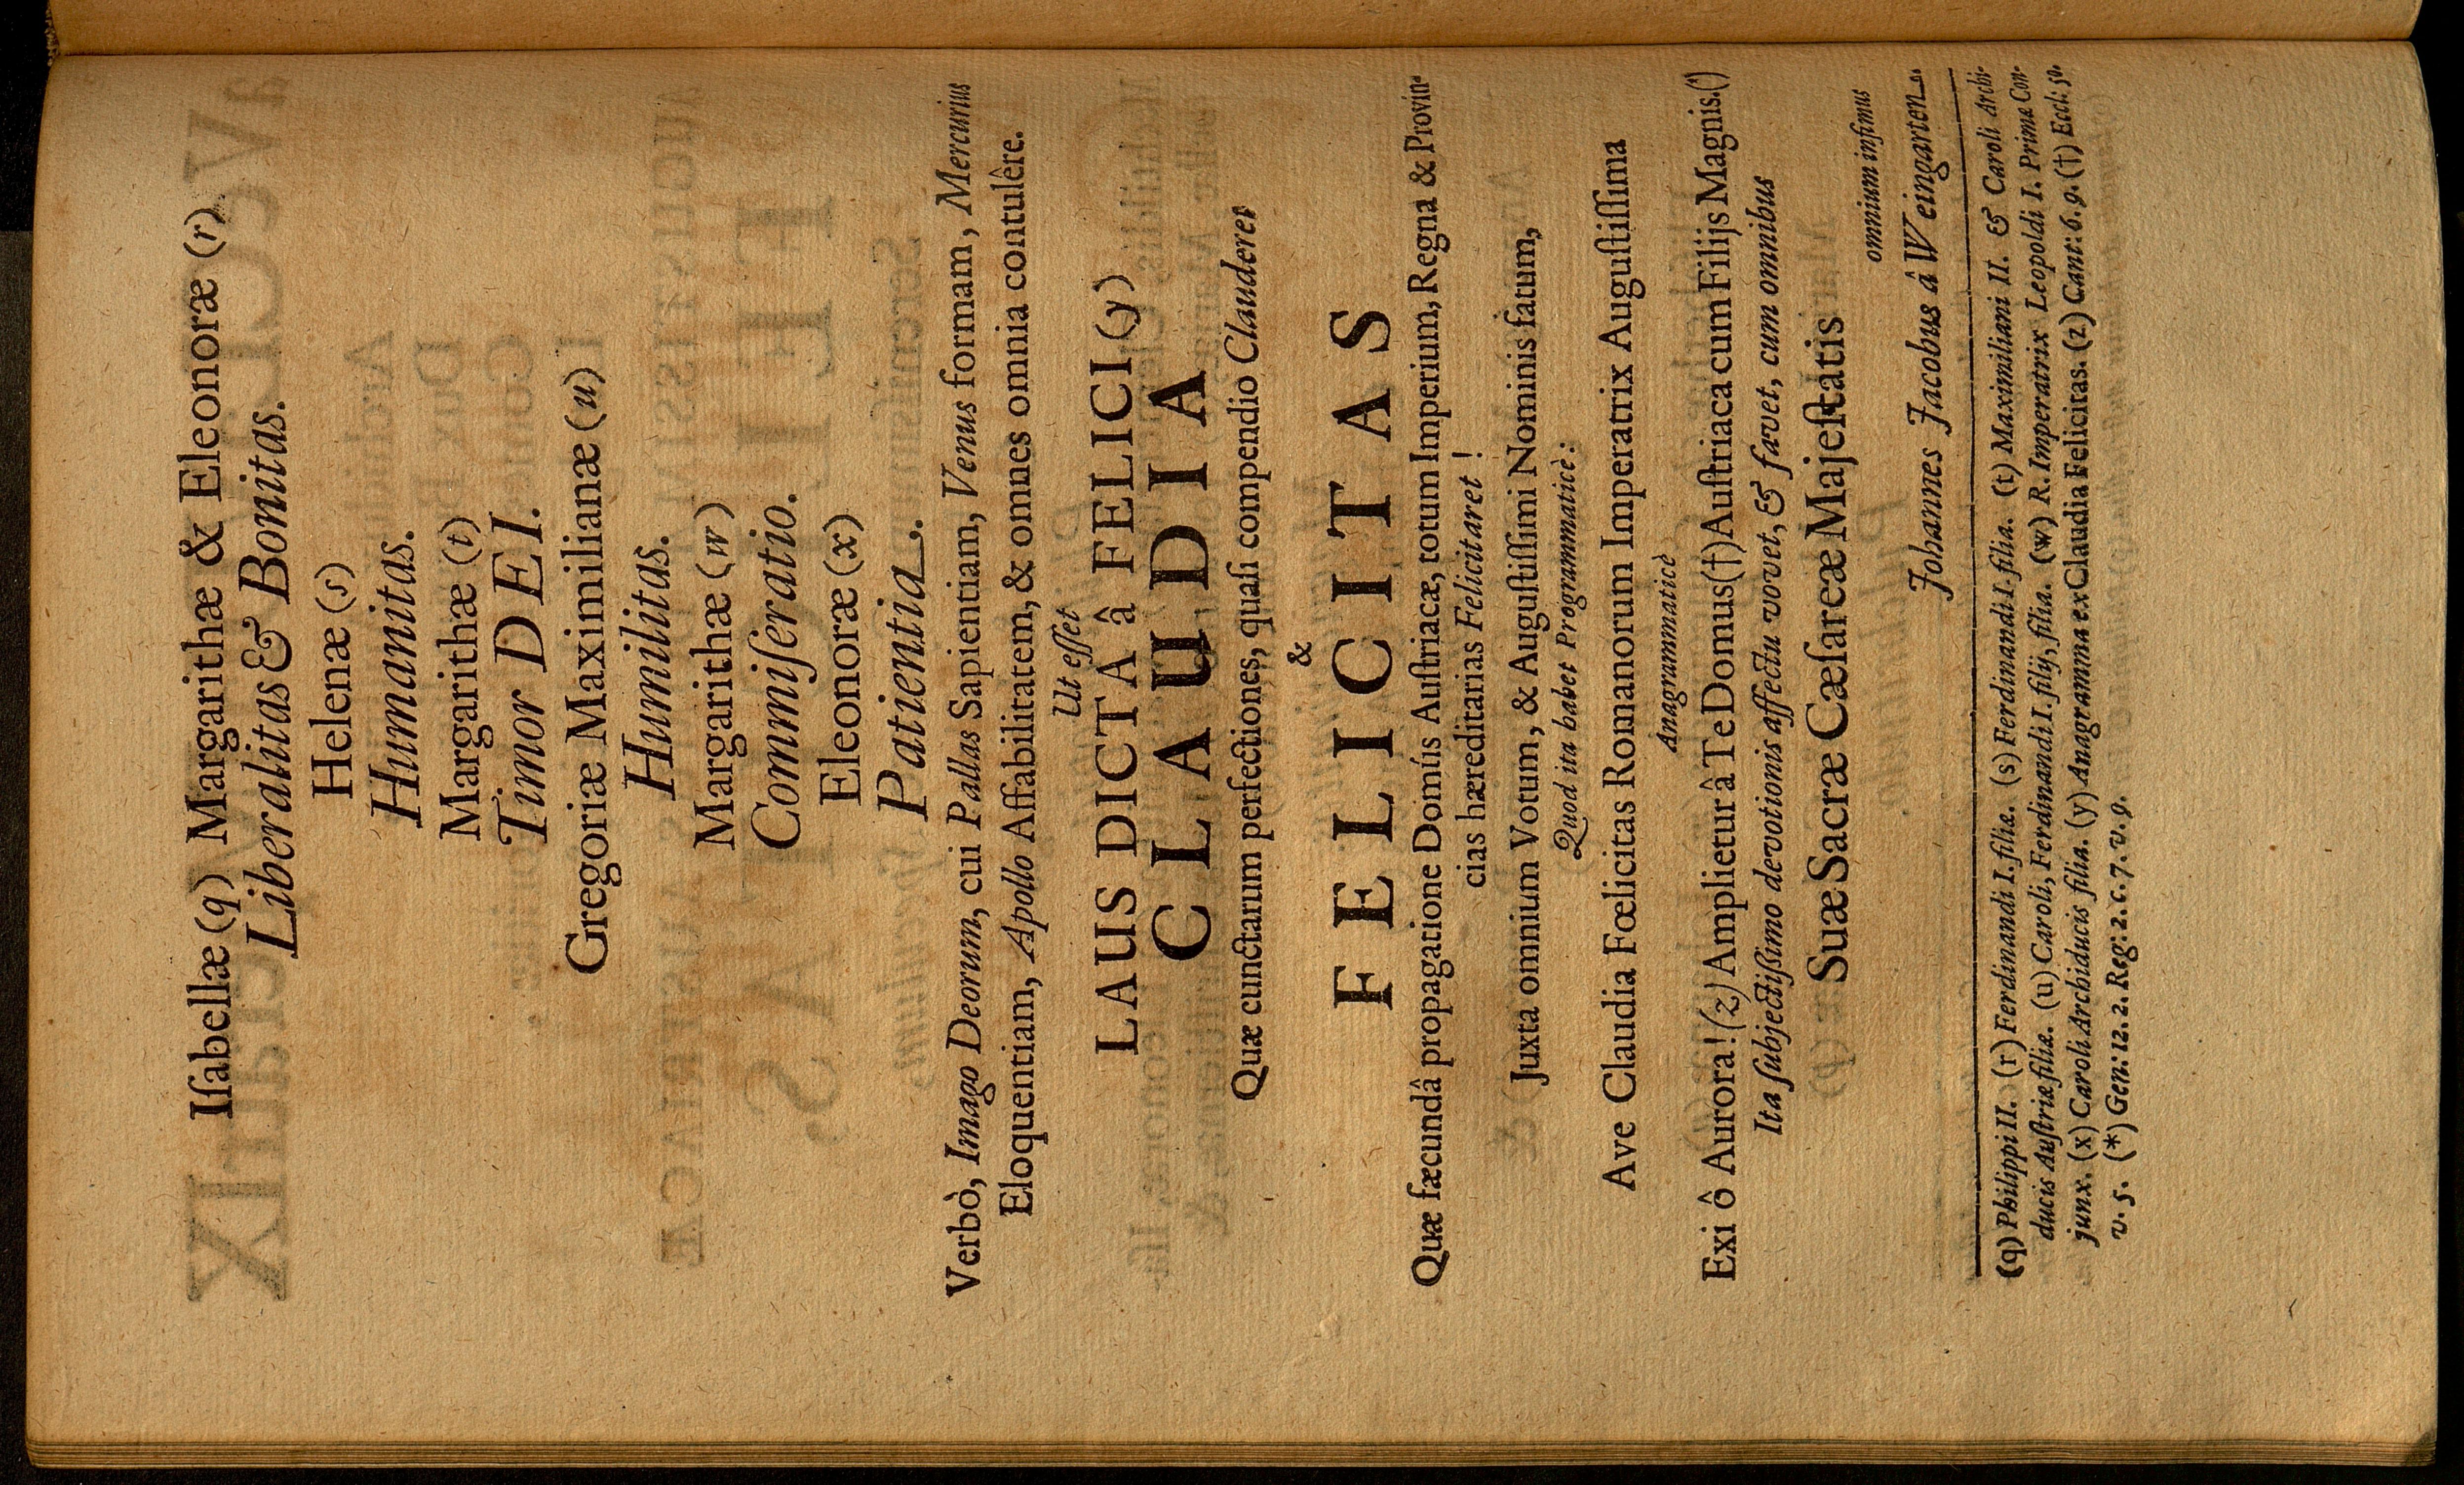 Iſabellæ (q) Margarithæ & Eleonoræ (r)
Liberalitas & Bonitas.
Helenæ (s)
Humanitas.
Margarithæ (t)
Timor DEI.
Gregoriæ Maximilianæ (u)
Humilitas.
Margarithæ (w)
Commiſeratio.
Eleonoræ (x)
Patientia.
Verbò, Imago Deorum, cui Pallas Sapientiam, Venus formam, Mercurius
Eloquentiam, Apollo Affabilitatem, & omnes omnia contulêre.
Ut eſſet
LAUS DICTA â FELICI (y)
CLAUDIA
Quæ cunctarum perfectiones, quaſi compendio Clauderet
&
FELICITAS
Quæ fæcundâ propagatione Domûs Auſtriacæ, totum Imperium, Regna & Provin-
cias hæreditarias Felicitaret !
Juxta omnium Votum, & Auguſtiſſimi Nominis fatum,
Quod ita habet Programmaticè :
Ave Claudia Fœlicitas Romanorum Imperatrix Auguſtiſſima
Anagrammaticè
Exi ô Aurora! (z) Amplietur â Te Domus (†) Auſtriaca cum Filijs Magnis. (*)
Ita ſubjectißimo devotionis affectu vovet, & favet, cum omnibus
Suæ Sacræ Cæſareæ Majeſtatis
omnium infimus
Johannes Jacobus â Weingarten.
(q) Philippi II. (r) Ferdinandi I. filiæ. (s) Ferdinandi I. filia. (t) Maximiliani II. & Caroli Archi-
ducis Auſtriæ filiæ. (u) Caroli, Ferdinandi I. filij, filia. (w) R. Imperatrix Leopoldi I. Prima Con-
junx. (x) Caroli Archiducis filia. (y) Anagramma ex Claudia Felicitas. (z) Cant: 6. 9. (†) Eccl: 50.
v. 5. (*) Gen: 12. 2. Reg: 2. c. 7. v. 9.